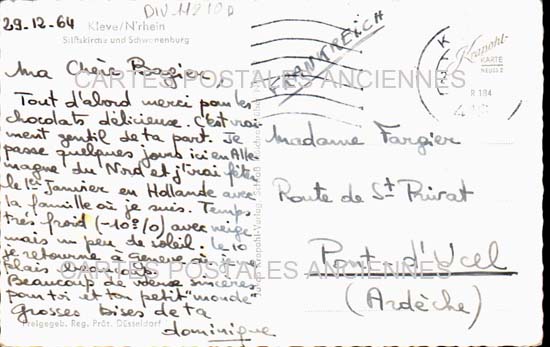 DIV-11810D
29.12.64
Kleve/N'rhein
Stiftskirche und Schwanenburg
FRANKREICH
Krapohl-
KARTE
NEUSS 2
R 184
CARTES POSTALES ANCIENNES
Ma Chère
Tout d'abord merci pour les
chocolats délicieux. C'est vrai-
ment gentil de ta part. Je
passe quelques jours ici en Alle-
magne du Nord et j'irai fêter
le 1er Janvier en Hollande avec
la famille où je suis. Temps
très froid (-10°/0) avec neige
mais un peu de soleil. le 10
je retourne à Genève où je me
plais beaucoup.
Beaucoup de voeux sincères
pour toi et ton petit "monde"
Grosses bises de ta
dominique
Freigegeb. Reg. Präs. Düsseldorf
Krapohl-Verlag
Madame Fargier
Route de St Privat
Pont-d'Ucel
CARTES POSTALES ANCIENNES
(Ardèche)